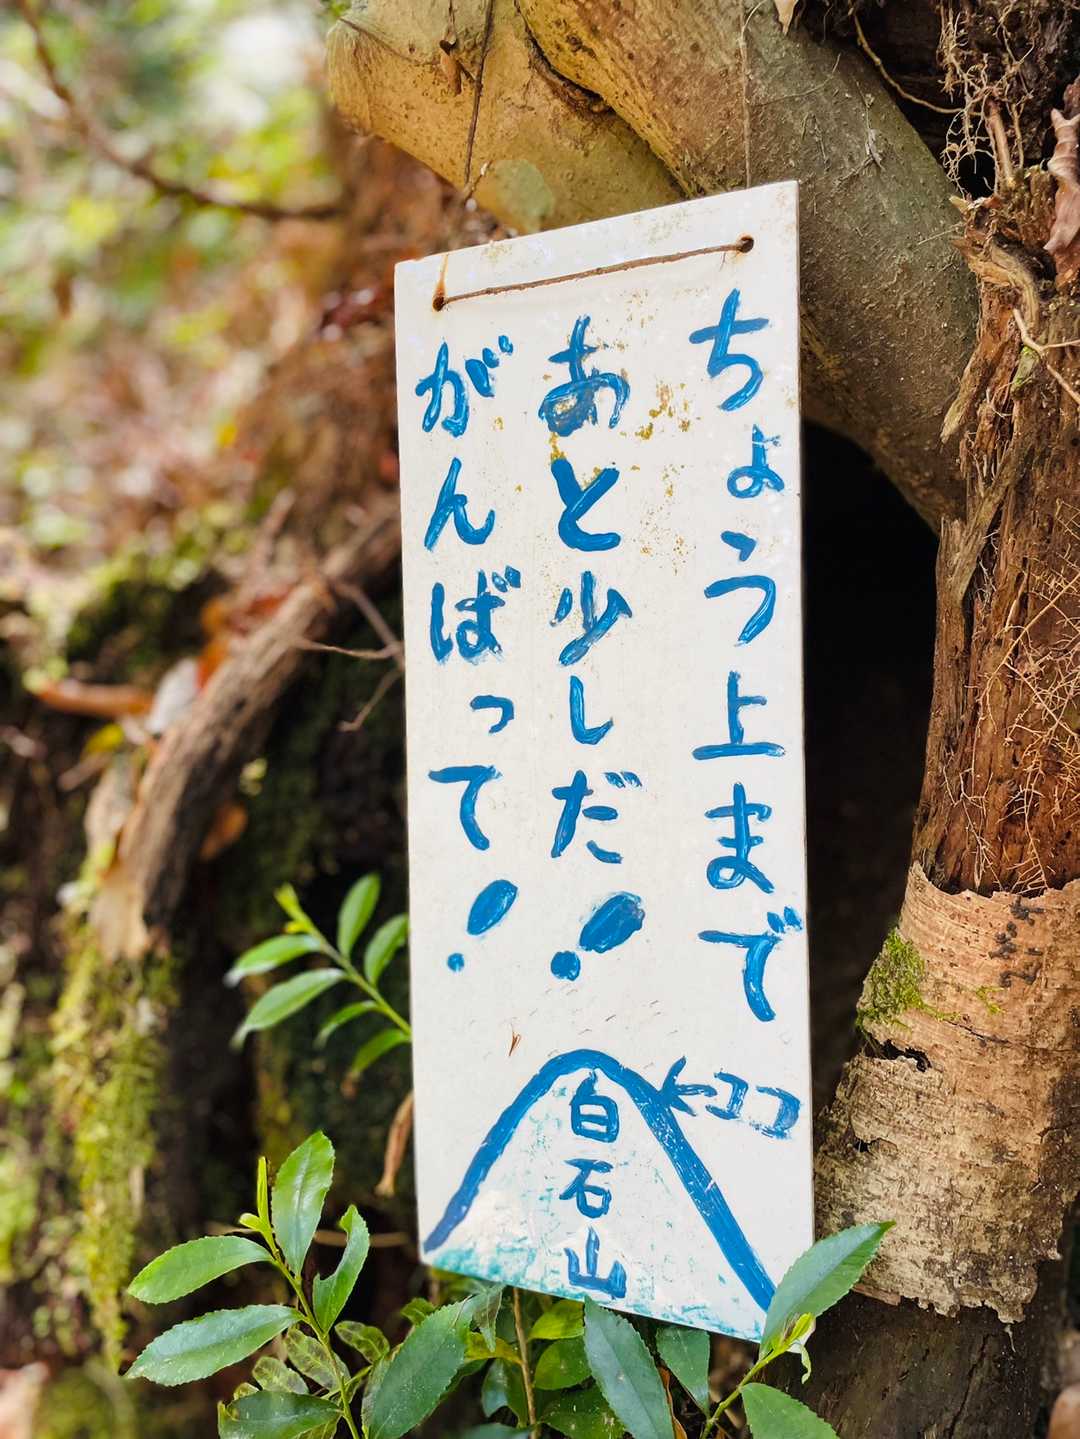 ちょう上まで
あと少しだ!
がんばって!
ココ
白石山